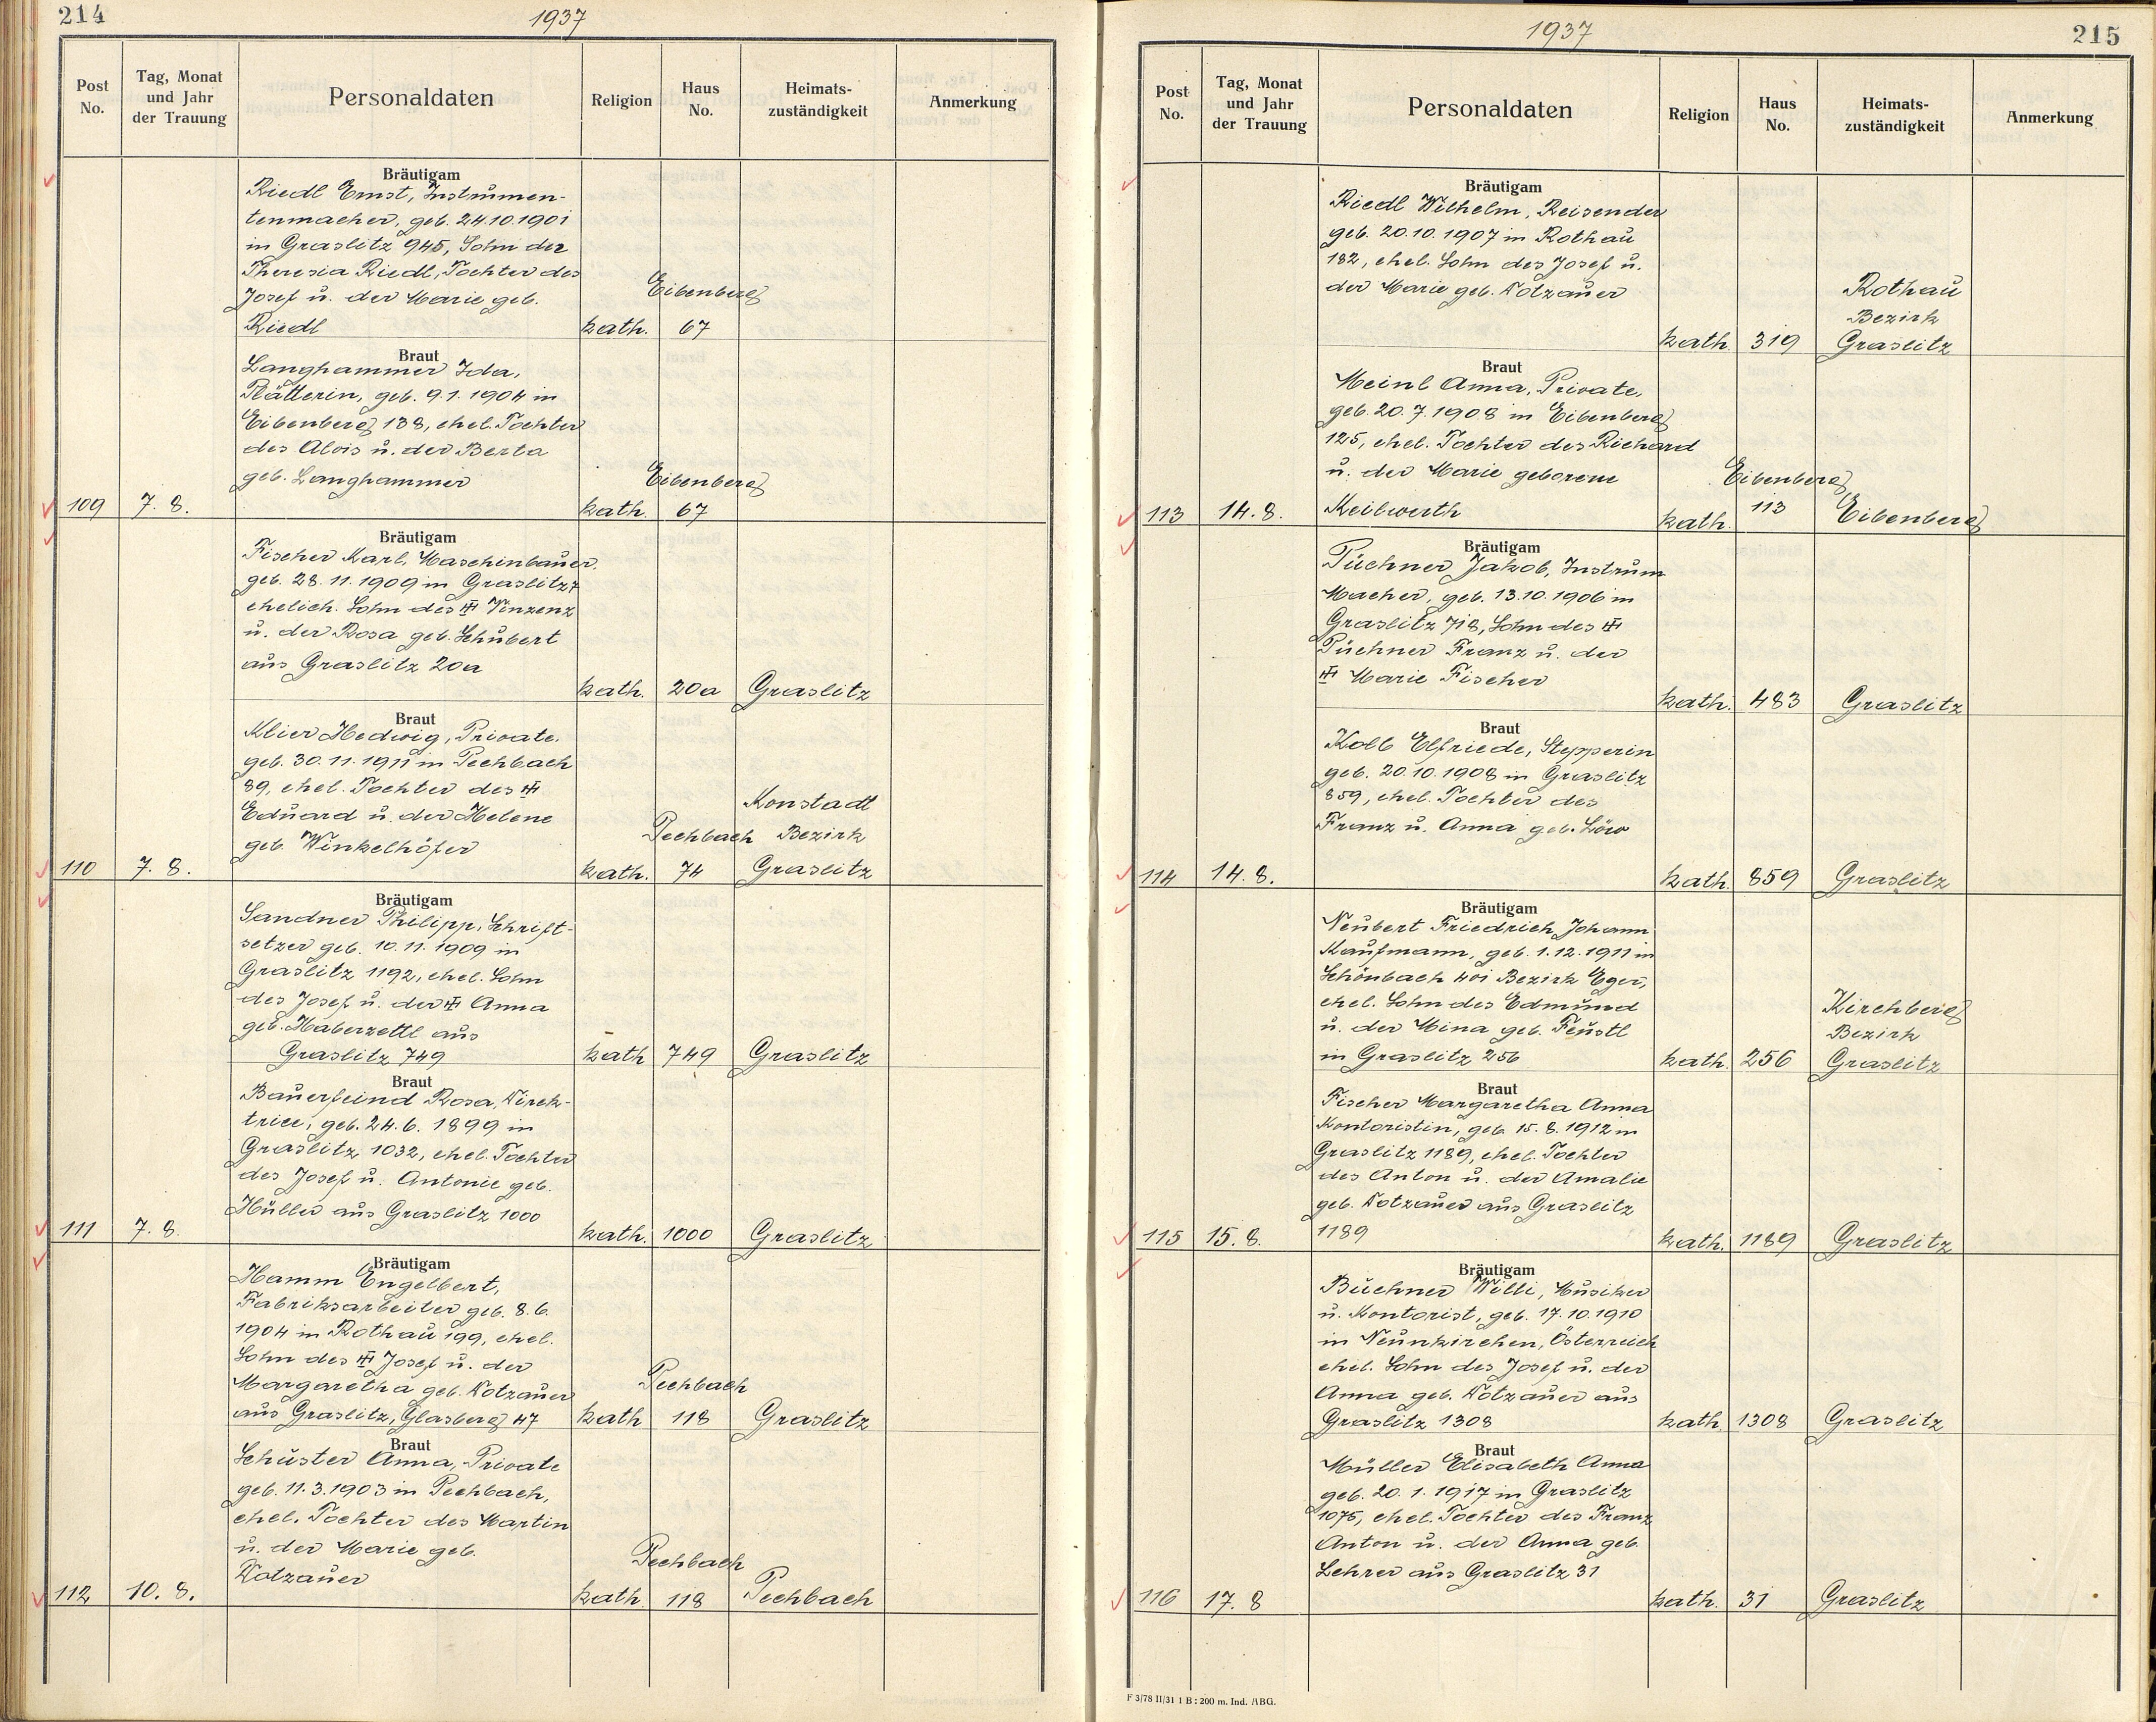 214
1937
Post No.
Tag, Monat und Jahr der Trauung
Personaldaten
Religion
Haus No.
Heimats-zuständigkeit
Anmerkung
Bräutigam
Riedl Ernst, Instrumen-
tenmacher, geb. 24.10.1901
in Graslitz 945, Sohn der
Theresia Riedl, Tochter des
Josef u. der Marie geb.
Eibenberg
Riedl kath. 67
Braut
Langhammer Ida,
Plätterin, geb. 9.1.1904 in
Eibenberg 138, ehel. Tochter
des Alois u. der Berta
geb. Langhammer Eibenberg
109 7. 8. kath. 67
Bräutigam
Fischer Karl, Maschinbauer.
geb. 28.11.1909 in Graslitz
ehelich. Sohn des Vinzenz
u. der Rosa geb. Schubert
aus Graslitz 20a
kath. 20a Graslitz
Braut
Klier Hedwig, Private.
geb. 30.11.1911 in Pechbach
89, ehel. Tochter des
Eduard u. der Helene Konstadt
geb. Winkelhöfer Pechbach Bezirk
110 7. 8. kath. 74 Graslitz
Bräutigam
Sandner Philipp, Schrift-
setzer geb. 10.11.1909 in
Graslitz 1192, ehel. Sohn
des Josef u. der Anna
geb. Haberzettl aus
Graslitz 749 kath 749 Graslitz
Braut
Bauerfeind Rosa, Direk-
trice, geb. 24.6.1899 in
Graslitz 1032, ehel. Tochter
des Josef u. Antonie geb.
Müller aus Graslitz 1000
111 7. 8. kath. 1000 Graslitz
Bräutigam
Hamm Engelbert,
Fabriksarbeiter geb. 8.6.
1904 in Rothau 199, ehel.
Sohn des Josef u. der
Margaretha geb. Dotzauer Pechbach
aus Graslitz, Glasberg 47 kath 118 Graslitz
Braut
Schuster Anna, Private
geb. 11.3.1903 in Pechbach,
ehel. Tochter des Martin
u. der Marie geb. Pechbach
Dotzauer
112 10. 8. kath. 118 Pechbach
1937
215
Post No.
Tag, Monat und Jahr der Trauung
Personaldaten
Religion
Haus No.
Heimats-zuständigkeit
Anmerkung
Bräutigam
Riedl Wilhelm, Reisender
geb. 20.10.1907 in Rothau
182, ehel. Sohn des Josef u.
der Marie geb. Dotzauer Rothau
Bezirk
kath. 319 Graslitz
Braut
Meinl Anna, Private,
geb. 20.7.1908 in Eibenberg
125, ehel. Tochter des Richard
u. der Marie geborene Eibenberg
113 14. 8. Keilwerth kath. 113 Eibenberg
Bräutigam
Püchner Jakob, Instrum
Macher, geb. 13.10.1906 in
Graslitz 718, Sohn des
Püchner Franz u. der
Marie Fischer
kath. 483 Graslitz
Braut
Kolb Elfriede, Stepperin
geb. 20.10.1908 in Graslitz
859, ehel. Tochter des
Franz u. Anna geb. Löw
114 14. 8. kath. 859 Graslitz
Bräutigam
Neubert Friedrich Johann
Kaufmann, geb. 1.12.1911 in
Schönbach 401 Bezirk Eger,
ehel. Sohn des Edmund Kirchberg
u. der Mina geb. Feustl Bezirk
in Graslitz 256 kath. 256 Graslitz
Braut
Fischer Margaretha Anna
Kontoristin, geb. 15.8.1912 in
Graslitz 1189, ehel. Tochter
des Anton u. der Amalie
geb. Dotzauer aus Graslitz
115 15. 8. 1189 kath. 1189 Graslitz
Bräutigam
Büchner Willi, Musiker
u. Kontorist, geb. 17.10.1910
in Neunkirchen, Österreich
ehel. Sohn des Josef u. der
Anna geb. Dotzauer aus
Graslitz 1308 kath. 1308 Graslitz
Braut
Müller Elisabeth Anna
geb. 20.1.1917 in Graslitz
1075, ehel. Tochter des Franz
Anton u. der Anna geb.
Lehrer aus Graslitz 31
116 17. 8 kath. 31 Graslitz
F 3/78 II/31 1 B : 200 m. Ind. ABG.